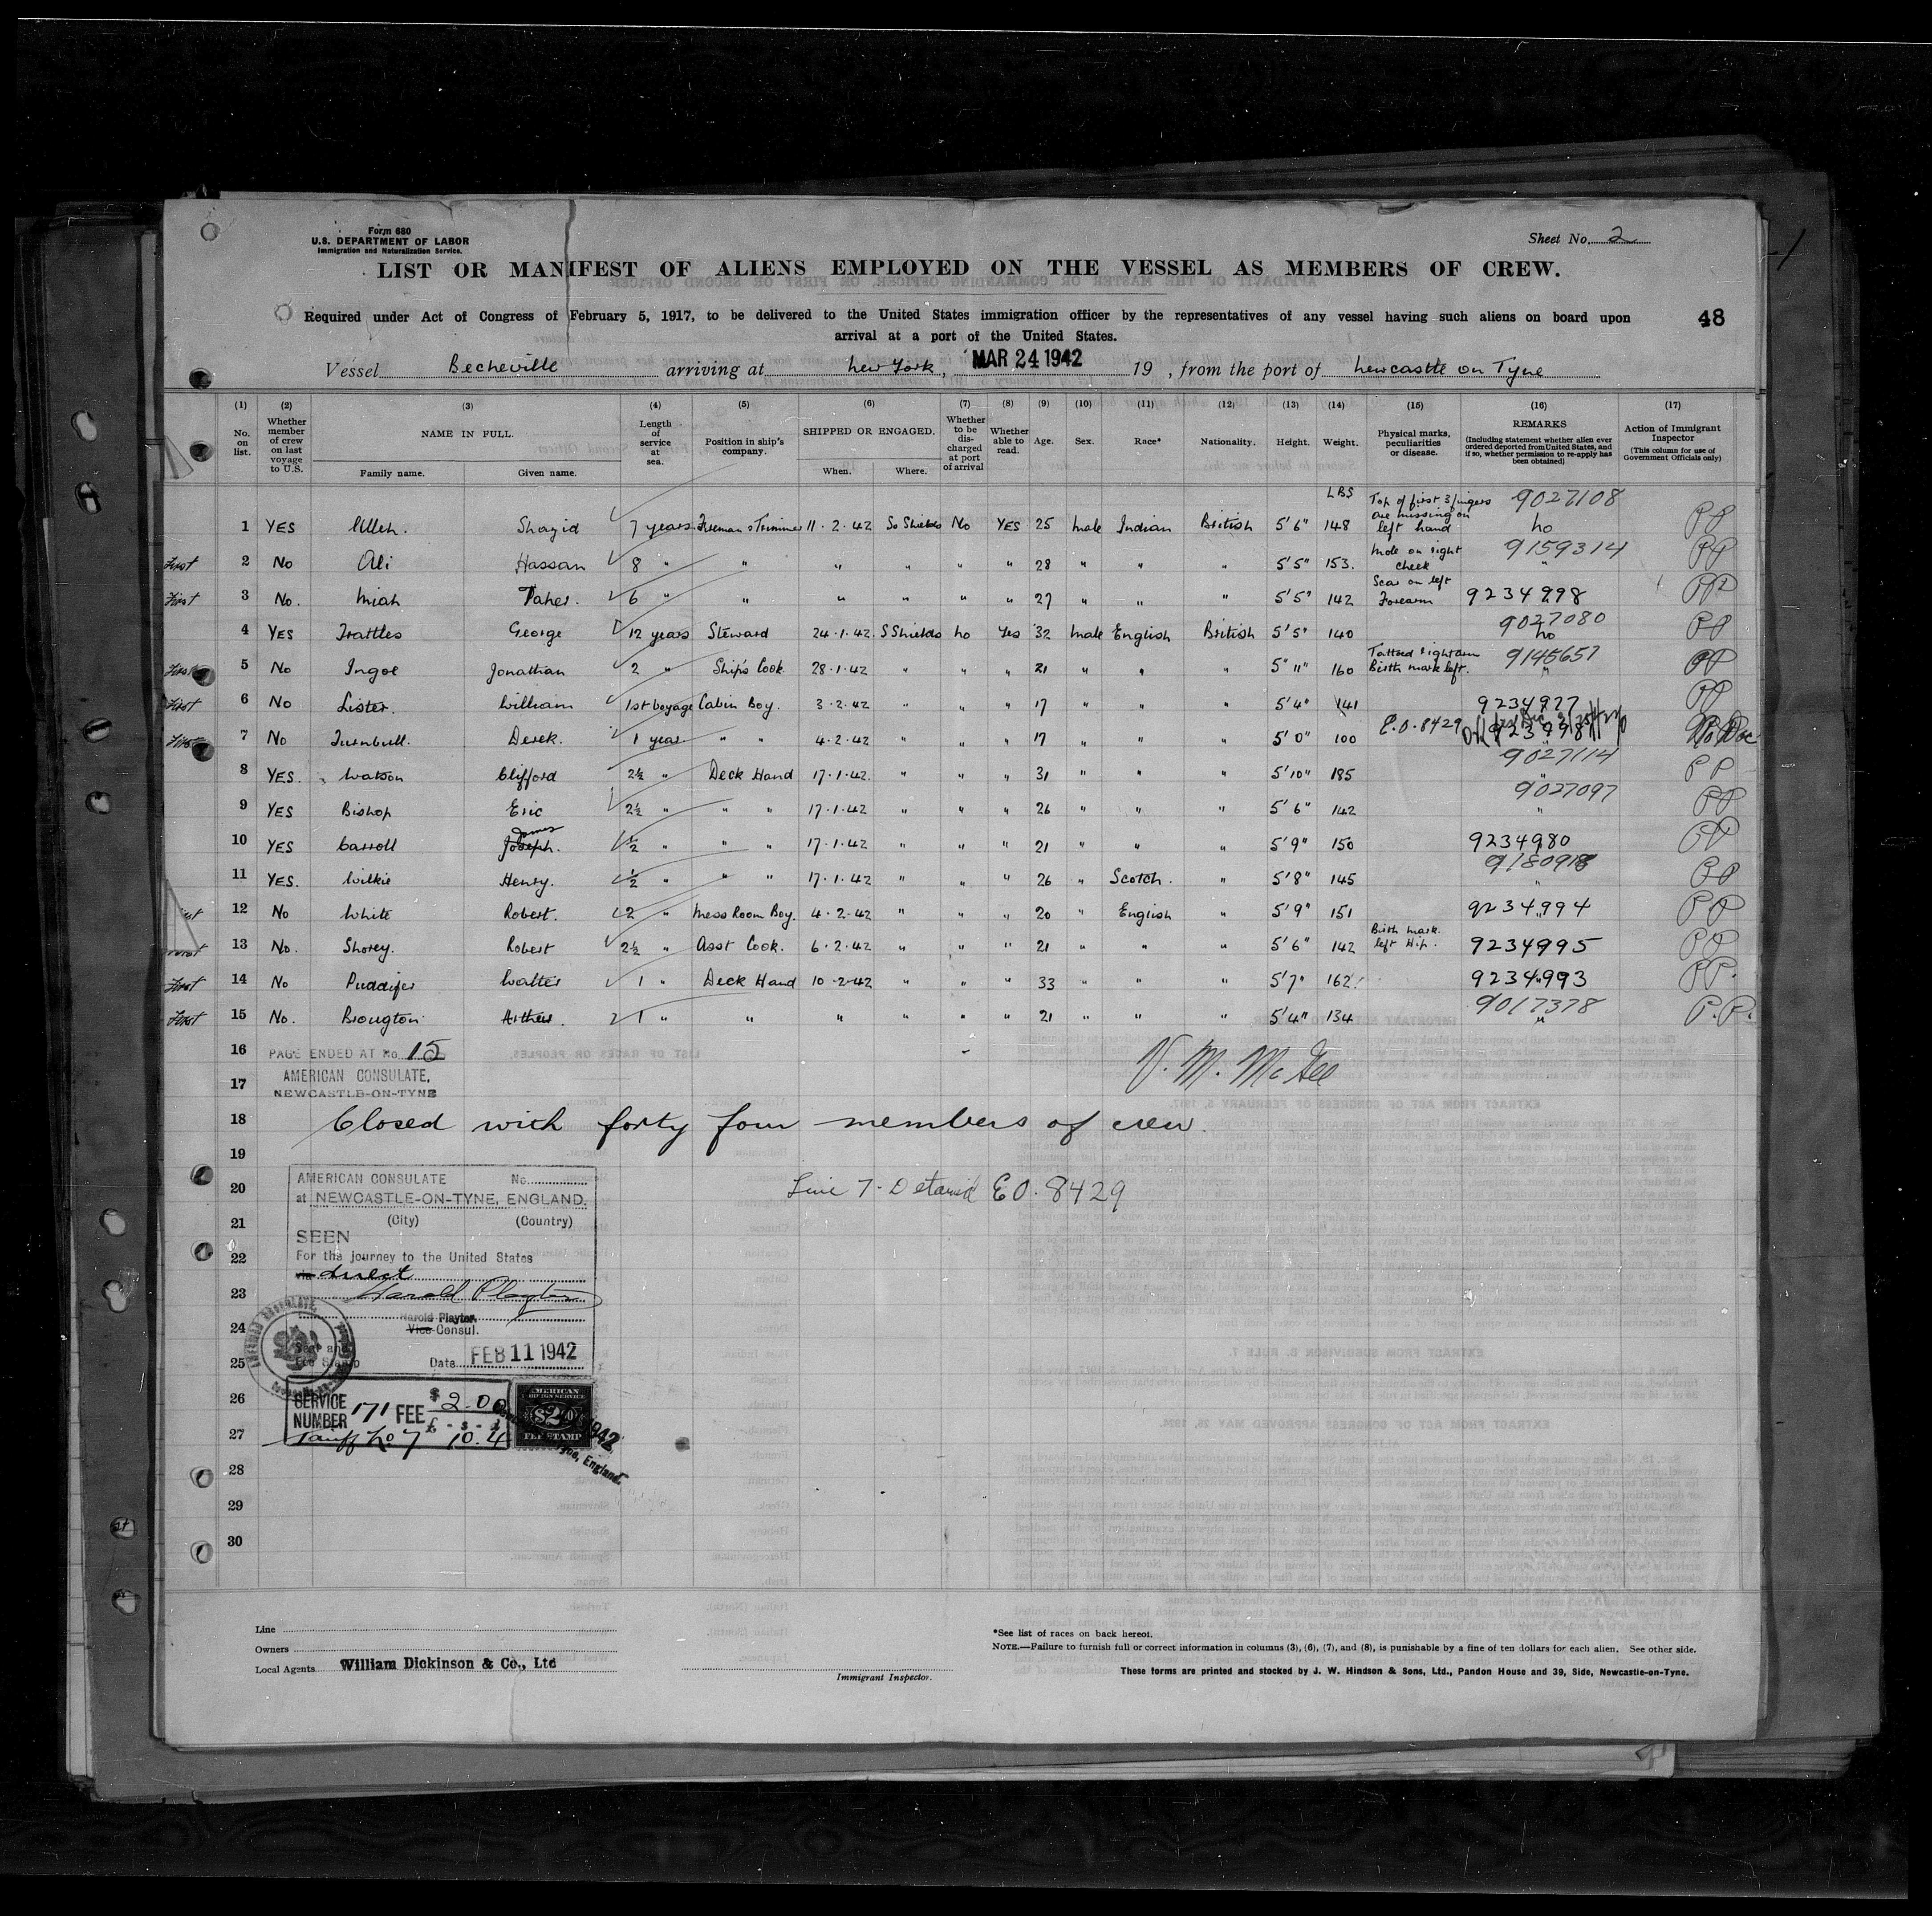 Form 680
U.S. DEPARTMENT OF LABOR
Immigration and Naturalization Service.
Sheet No. 2
LIST OR MANIFEST OF ALIENS EMPLOYED ON THE VESSEL AS MEMBERS OF CREW.
Required under Act of Congress of February 5, 1917, to be delivered to the United States immigration officer by the representatives of any vessel having such aliens on board upon
arrival at a port of the United States.
48
Vessel Becheville arriving at New York, MAR 24 1942 19 , from the port of Newcastle on Tyne
(1) (2) (3) (4) (5) (6) (7) (8) (9) (10) (11) (12) (13) (14) (15) (16) (17)
No. on list. Whether member of crew on last voyage to U.S. NAME IN FULL. Family name. Given name. Length of service at sea. Position in ship's company. SHIPPED OR ENGAGED. When. Where. Whether to be discharged at port of arrival Whether able to read. Age. Sex. Race* Nationality. Height. Weight. Physical marks, peculiarities or disease. REMARKS (Including statement whether alien ever ordered deported from United States, and if so, whether permission to re-apply has been obtained) Action of Immigrant Inspector (This column for use of Government Officials only)
LBS
1 YES Ulleh. Shayid 7 years Fireman & Trimmer 11.2.42 So Shields No YES 25 Male Indian British 5'6" 148 Top of first 3 fingers are missing on left hand 9027108 No PP
First 2 No Ali Hassan 8 " " " " " " 28 " " " 5'5" 153. Mole on right cheek 9159314 " PP
First 3 No. Miah Taher. 6 " " " " " " 27 " " " 5'5" 142 Scar on left Forearm 9234998 PP
4 YES Trattles George 12 years Steward 24.1.42. S Shields No Yes 32 Male English British 5'5" 140 9027080 No PP
First 5 No Ingoe Jonathan 2 " Ship's Cook 28.1.42 " " " 21 " " " 5'11" 160 Tattoed right arm Birth mark left. 9145657 " PP
First 6 No Lister. William 1st Voyage Cabin Boy. 3.2.42 " " " 17 " " " 5'4" 141 9234977 PP
First 7 No Turnbull. Derek. 1 year " " 4.2.42 " " " 17 " " " 5'0" 100 E.O. 8429 No Doc
8 YES. Watson Clifford 2½ " Deck Hand 17.1.42. " " " 31 " " " 5'10" 185 9027114 " PP
9 YES Bishop Eric 2½ " " " 17.1.42 " " " 26 " " " 5'6" 142 9027097 " PP
10 YES Carroll James Joseph. ½ " " " 17.1.42 " " " 21 " " " 5'9" 150 9234980 PP
11 YES. Wilkie Henry. ½ " " " 17.1.42 " " " 26 " Scotch. " 5'8" 145 " PP
12 No White Robert. 2 " Mess Room Boy. 4.2.42 " " " 20 " English " 5'9" 151 9234994 PP
13 No. Shorey. Robert 2½ " Asst Cook. 6.2.42 " " " 21 " " " 5'6" 142 Birth mark. left Hip. 9234995 PP
First 14 No Puddifer Walter 1 " Deck Hand 10.2.42 " " " 33 " " " 5'7" 162 9234993 PP.
First 15 No. Brougton Arthur. 1 " " " " " " 21 " " " 5'4" 134 9017378 " P.P.
16 PAGE ENDED AT No. 15
17 AMERICAN CONSULATE,
NEWCASTLE-ON-TYNE
V. M. McGee
18 Closed with forty four members of crew.
19
20 Line 7 - Detained EO. 8429
AMERICAN CONSULATE No.
at NEWCASTLE-ON-TYNE, ENGLAND.
21 (City) (Country)
SEEN
22 For the journey to the United States
via direct
23 Harold Playter
Harold Playter
24 Vice Consul.
Seal and
25 Fee Stamp Date FEB 11 1942
26 SERVICE NUMBER 171 FEE $2.00
£ - s - d
27 Tariff No 7 10.4
AMERICAN FOREIGN SERVICE $2.00 FEE STAMP
1942
Tyne, England.
28
29
30
Line
Owners
Local Agents William Dickinson & Co., Ltd
Immigrant Inspector.
*See list of races on back hereof.
NOTE.—Failure to furnish full or correct information in columns (3), (6), (7), and (8), is punishable by a fine of ten dollars for each alien. See other side.
These forms are printed and stocked by J. W. Hindson & Sons, Ltd., Pandon House and 39, Side, Newcastle-on-Tyne.